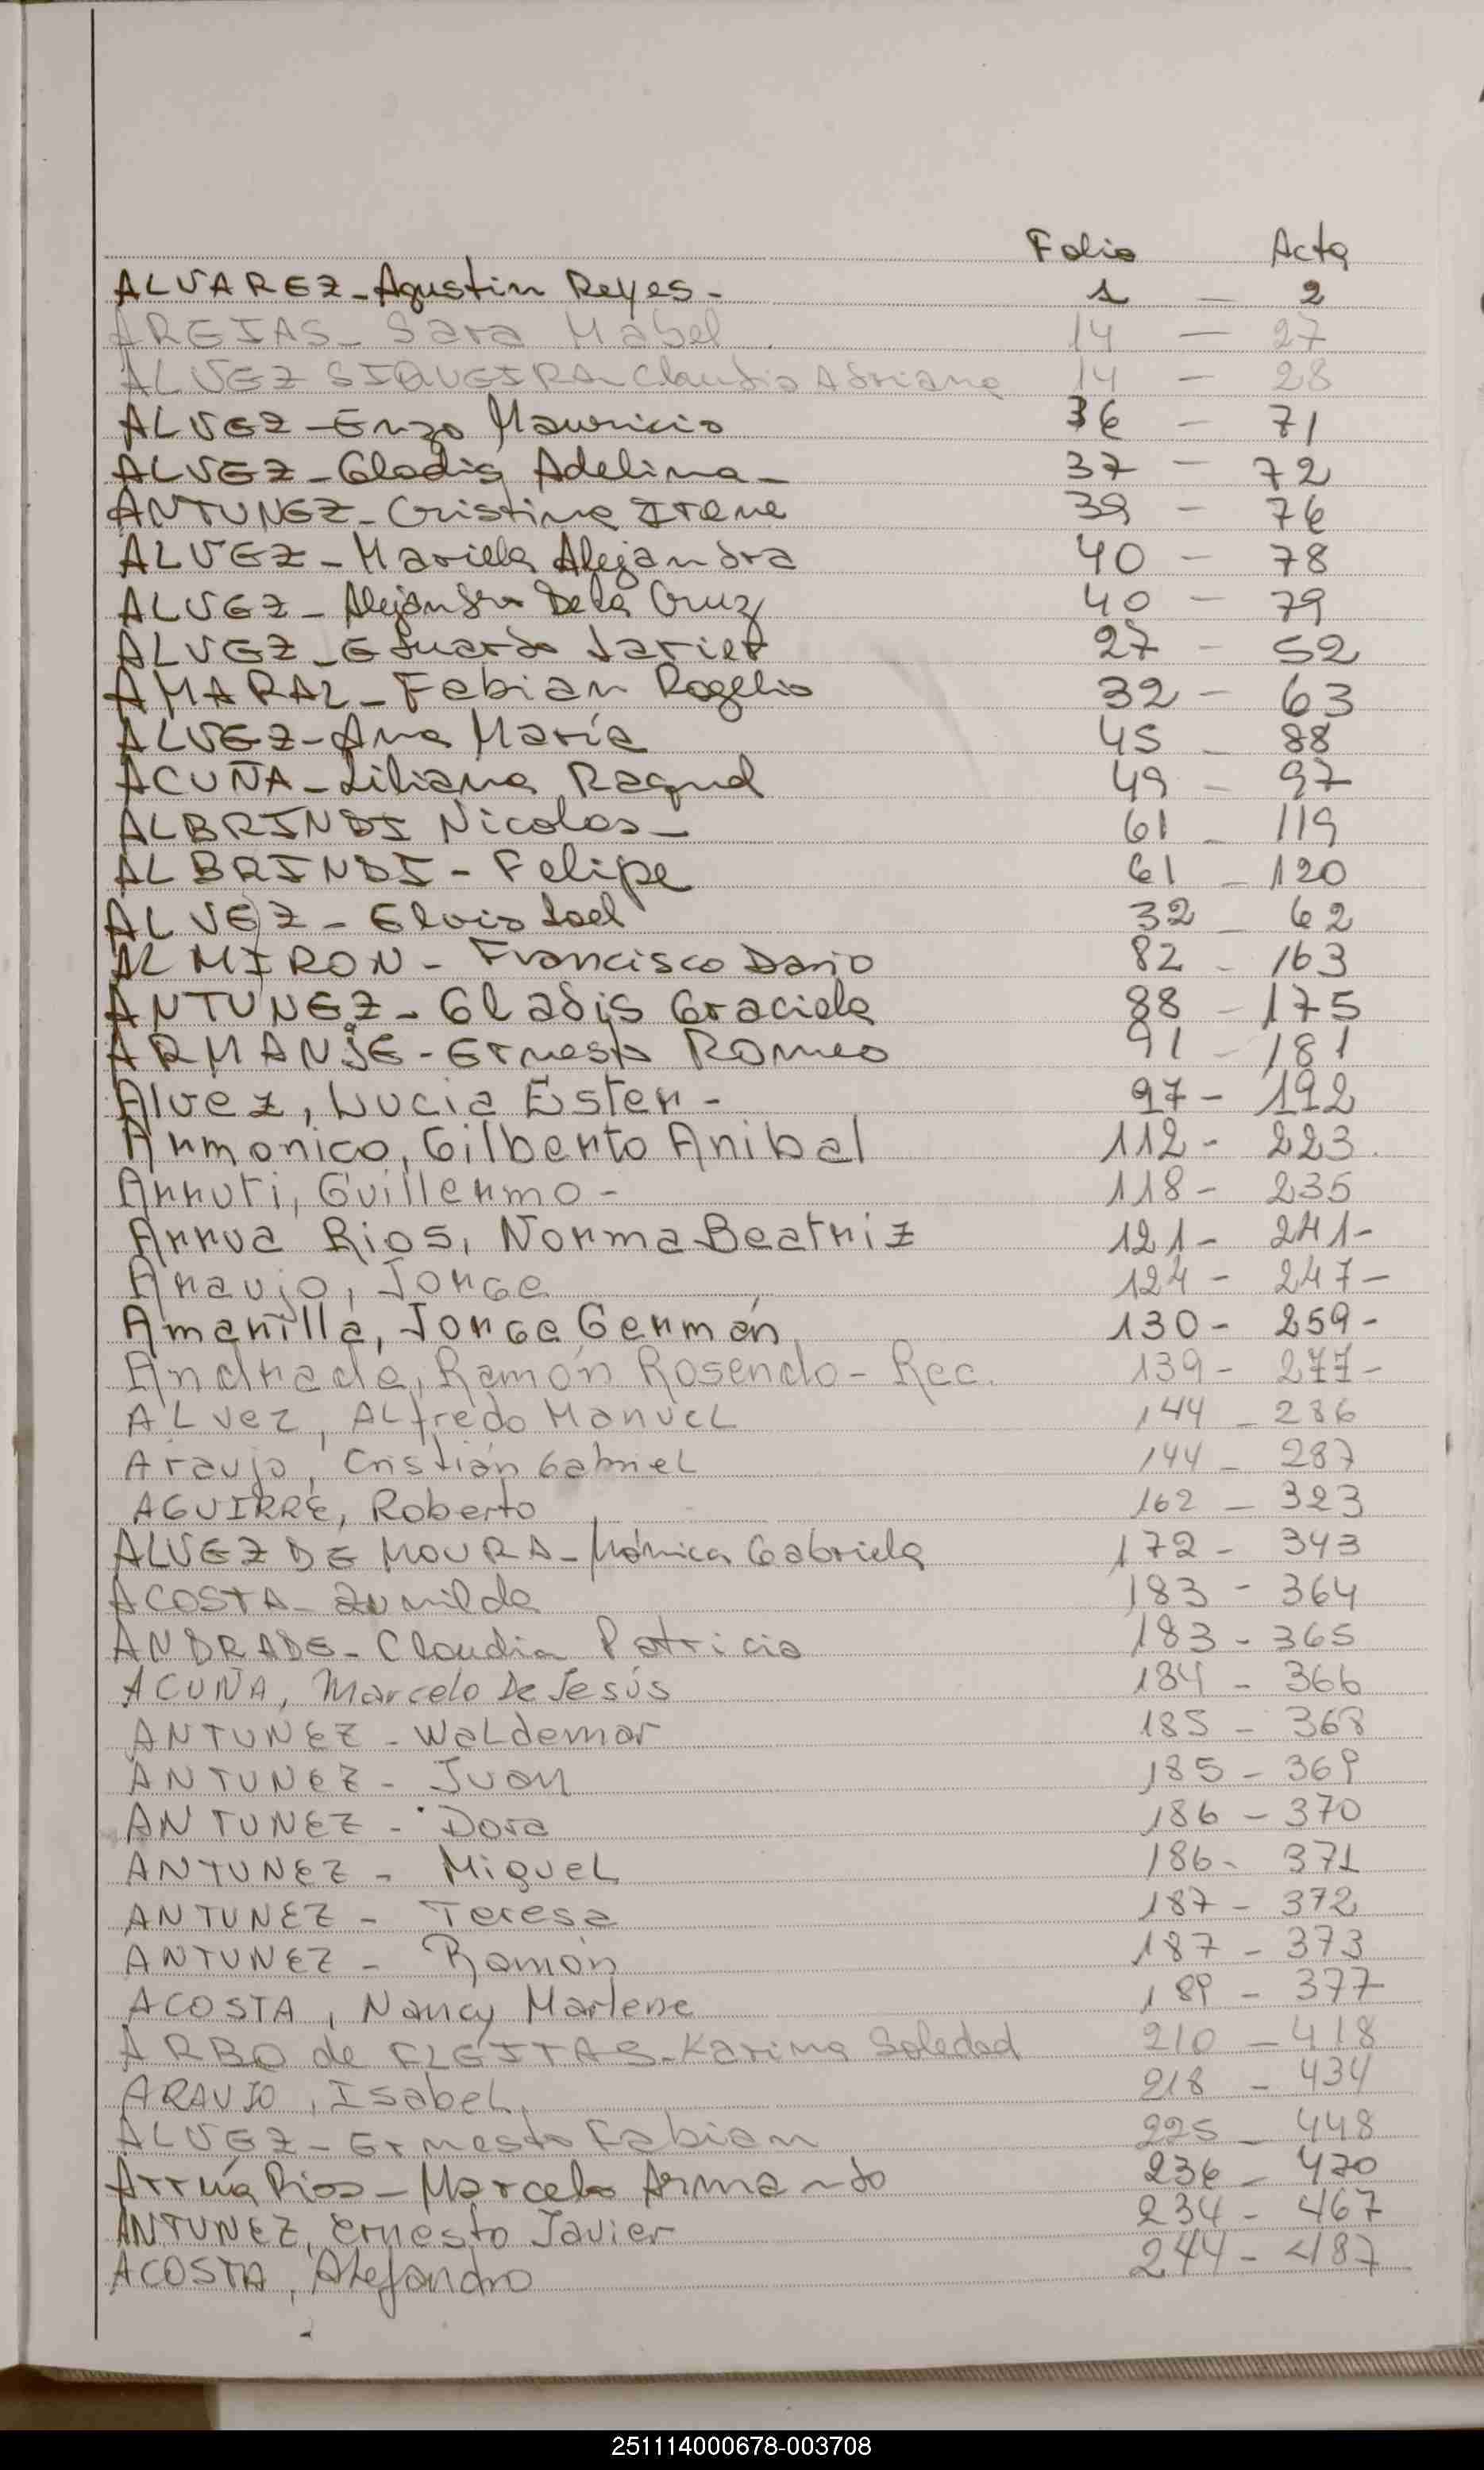 Folio Acta
ALVAREZ - Agustin Reyes - 1 - 2
AREJAS - Sara Mabel . 14 - 27
ALVEZ SIQUEIRA - Claudio Adriano 14 - 28
ALVEZ - Enzo Mauricio 36 - 71
ALVEZ - Gladis Adelina - 37 - 72
ANTUNEZ - Cristina Irene 39 - 76
ALVEZ - Mariela Alejandra 40 - 78
ALVEZ - Alejandra De la Cruz 40 - 79
ALVEZ - Eduardo Javier 27 - 52
AMARAL - Fabian Rogelio 32 - 63
ALVEZ - Ana María 45 - 88
ACUÑA - Liliana Raquel 49 - 97
ALBRINDI Nicolas - 61 - 119
ALBRINDI - Felipe 61 - 120
ALVEZ - Elvis 32 - 62
ALMIRON - Francisco Dario 82 - 163
ANTUNEZ - Gladis Graciela 88 - 175
ARMANJE - Ernesto Romeo 91 - 181
Alvez, Lucia Ester - 97 - 192
Armonico, Gilberto Anibal 112 - 223.
Arruti, Guillermo - 118 - 235
Arrua Rios, Norma Beatriz 121 - 241 -
Araujo, Jorge 124 - 247 -
Amarilla, Jorge Germán 130 - 259 -
Andrade, Ramón Rosendo - Rec. 139 - 277 -
ALvez, ALfredo ManueL 144 - 286
Araujo, Cristián GabrieL 144 - 287
AGUIRRE, Roberto 162 - 323
ALVEZ DE MOURA - Mónica Gabriela 172 - 343
ACOSTA - Zunilda 183 - 364
ANDRADE - Claudia Patricia 183 - 365
ACUÑA, Marcelo De Jesús 184 - 366
ANTUNEZ - WaLdemar 185 - 368
ANTUNEZ - Juan 185 - 369
ANTUNEZ - Dora 186 - 370
ANTUNEZ - MigueL 186 - 371
ANTUNEZ - Teresa 187 - 372
ANTUNEZ - Ramón 187 - 373
ACOSTA, Nancy Marlene 189 - 377
ARBO de FLEITAS - Karina Soledad 210 - 418
ARAUJO, IsabeL 218 - 434
ALVEZ - Ernesto Fabian 225 - 448
Arrúa Rios - Marcelo Armando 236 - 470
ANTUNEZ, Ernesto Javier 234 - 467
ACOSTA, Alejandro 244 - 487
251114000678-003708